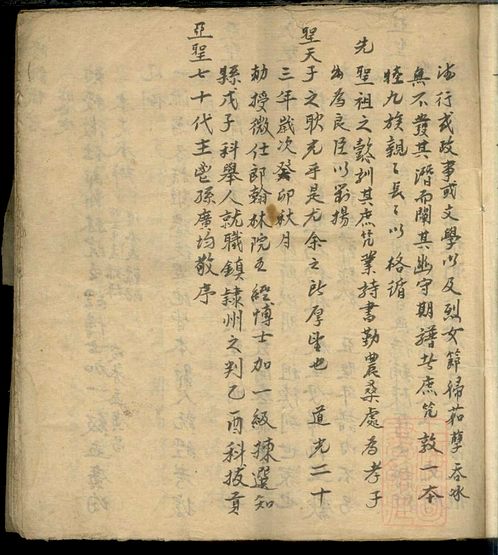 德行或政事或文學以及烈女節婦茹孽吞冰
無不發其潛而闡其幽守期譜者庶幾敦一本
睦九族親々長々以格循
先
聖祖之懿訓其庶幾業持書勤農桑處為孝子
出為良臣以對揚
聖天子之耿光乎是尤余之所厚望也 道光二十
三年歲次癸卯秋月
勅授徵仕郎翰林院五經博士加一級揀選知
縣戊子科舉人就職鎮隸州之判乙酉科拔貢
亞聖七十代主鬯孫廣均敬序